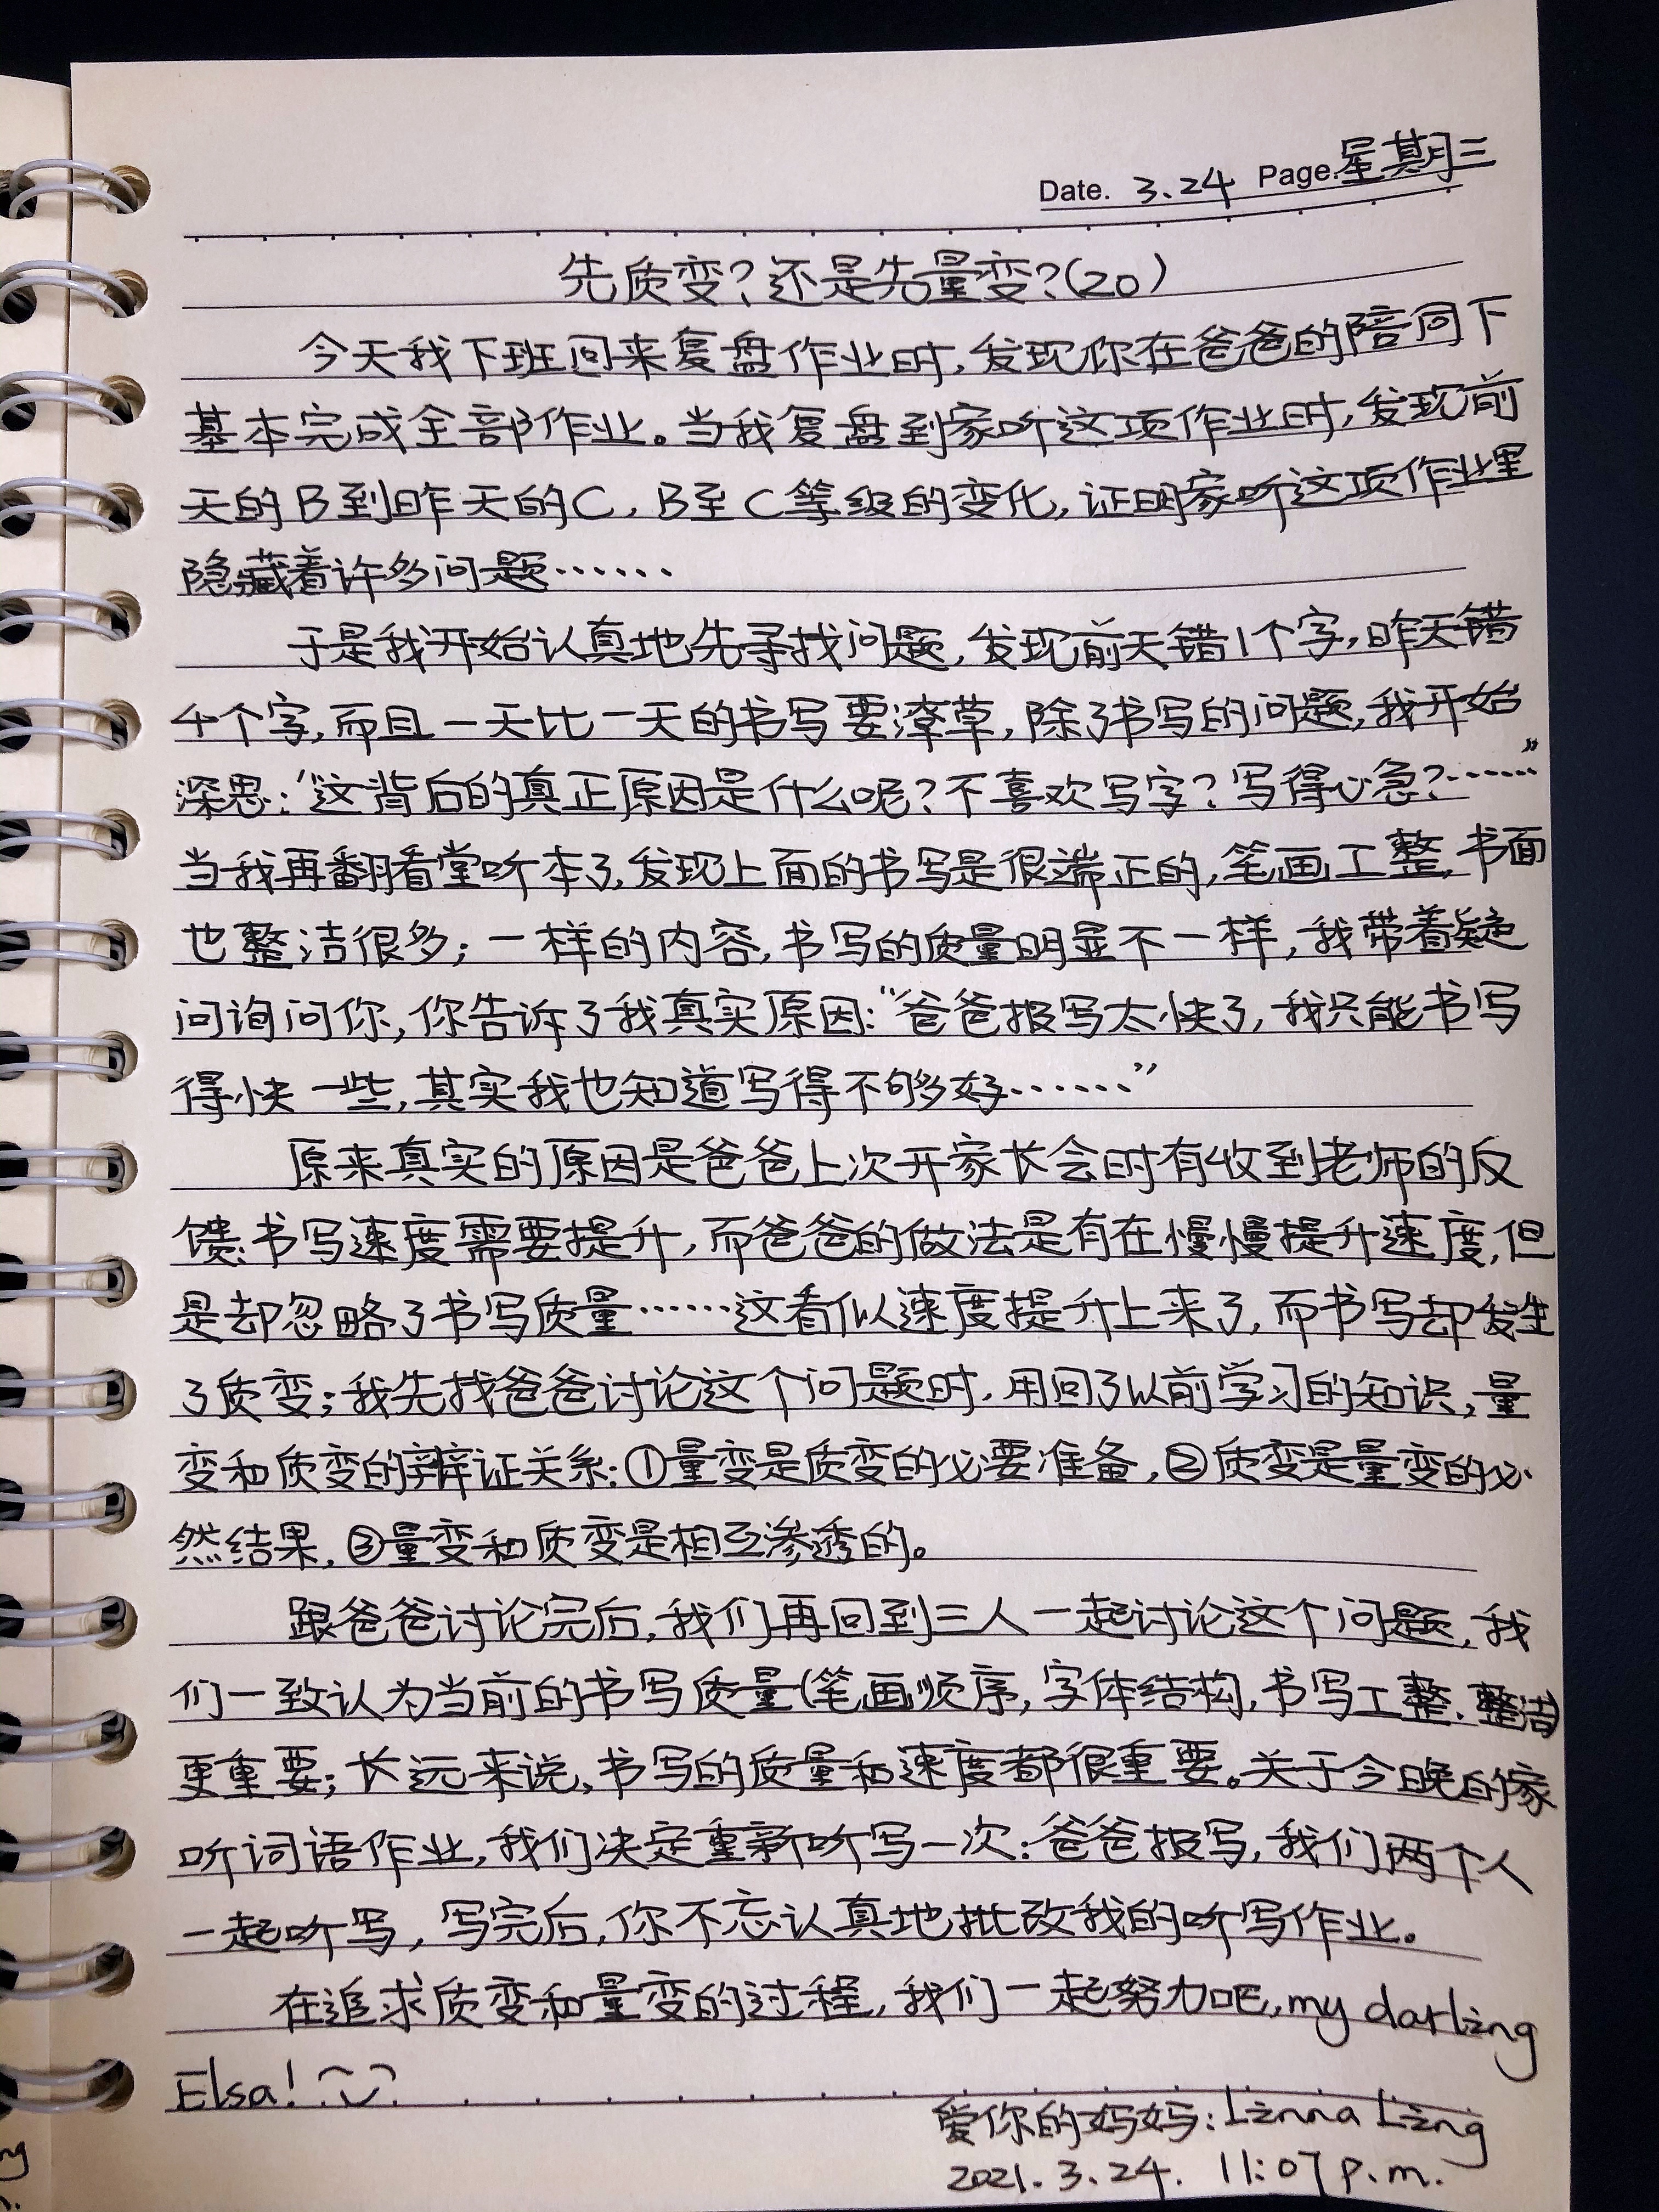 Date. 3.24 Page. 星期三
先质变?还是先量变?(20)
今天我下班回来复盘作业时,发现你在爸爸的陪同下
基本完成全部作业。当我复盘到家听这项作业时,发现前
天的B到昨天的C,B至C等级的变化,证明家听这项作业里
隐藏着许多问题……
于是我开始认真地先寻找问题,发现前天错1个字,昨天错
4个字,而且一天比一天的书写要潦草,除了书写的问题,我开始
深思:“这背后的真正原因是什么呢?不喜欢写字?写得心急?……”
当我再翻看堂听本了,发现上面的书写是很端正的,笔画工整,书面
也整洁很多;一样的内容,书写的质量明显不一样,我带着疑
问询问你,你告诉了我真实原因:“爸爸报写太快了,我只能书写
得快一些,其实我也知道写得不够好……”
原来真实的原因是爸爸上次开家长会时有收到老师的反
馈:书写速度需要提升,而爸爸的做法是有在慢慢提升速度,但
是却忽略了书写质量……这看似速度提升上来了,而书写却发生
了质变;我先找爸爸讨论这个问题时,用回了以前学习的知识,量
变和质变的辩证关系:①量变是质变的必要准备,②质变是量变的必
然结果,③量变和质变是相互渗透的。
跟爸爸讨论完后,我们再回到三人一起讨论这个问题,我
们一致认为当前的书写质量(笔画顺序,字体结构,书写工整、整洁)
更重要;长远来说,书写的质量和速度都很重要。关于今晚的家
听词语作业,我们决定重新听写一次:爸爸报写,我们两个人
一起听写,写完后,你不忘认真地批改我的听写作业。
在追求质变和量变的过程,我们一起努力吧,my darling
Elsa!
爱你的妈妈:Linna Ling
2021.3.24. 11:07 p.m.